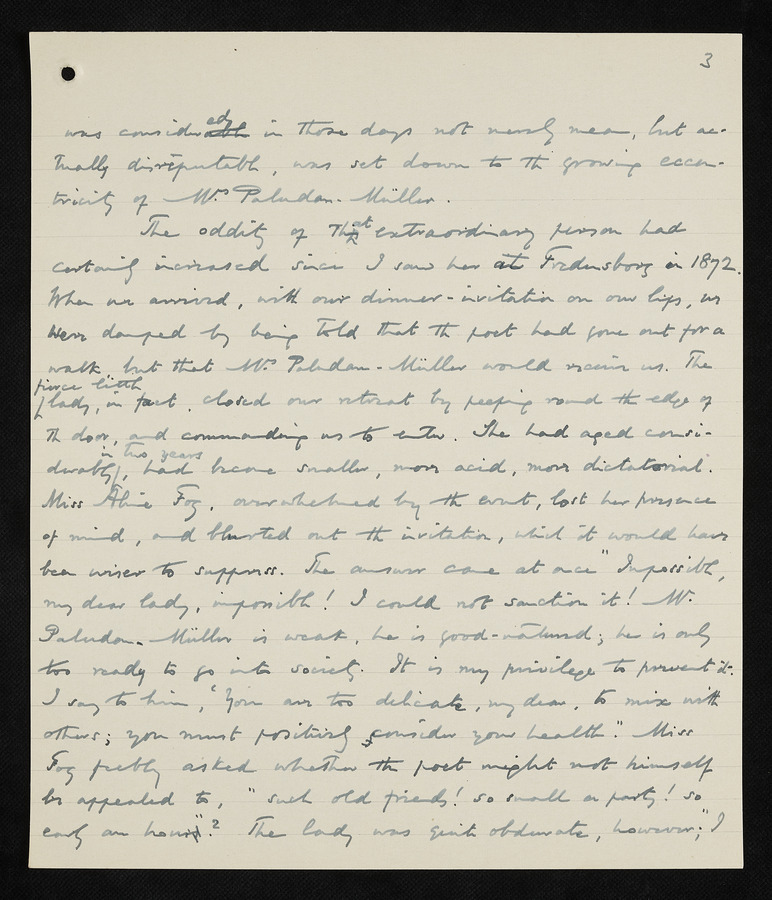 3
was considered in those days not merely mean, but ac-
tually disreputable, was set down to the growing eccen-
tricity of Mrs Paludan-Müller.
The oddity of that extraordinary person had
certainly increased since I saw her at Fredensborg in 1872.
When we arrived, with our dinner-invitation on our lips, we
were damped by being told that the poet had gone out for a
walk, but that Mrs Paludan-Müller would receive us. The
fierce little
lady, in fact, closed our retreat by peeping round the edge of
the door, and commanding us to enter. She had aged consi-
in two years
derably, had become smaller, more acid, more dictatorial.
Miss Aline Fog, overwhelmed by the event, lost her presence
of mind, and blurted out the invitation, which it would have
been wiser to suppress. The answer came at once "Impossible,
my dear lady, impossible! I could not sanction it! Mr.
Paludan-Müller is weak, he is good-natured; he is only
too ready to go into society. It is my privilege to prevent it.
I say to him, 'You are too delicate, my dear, to mix with
others; you must positively consider your health". Miss
Fog feebly asked whether the poet might not himself
be appealed to, "such old friends! so small a party! so
early an hour"? The lady was quite obdurate, however; "I